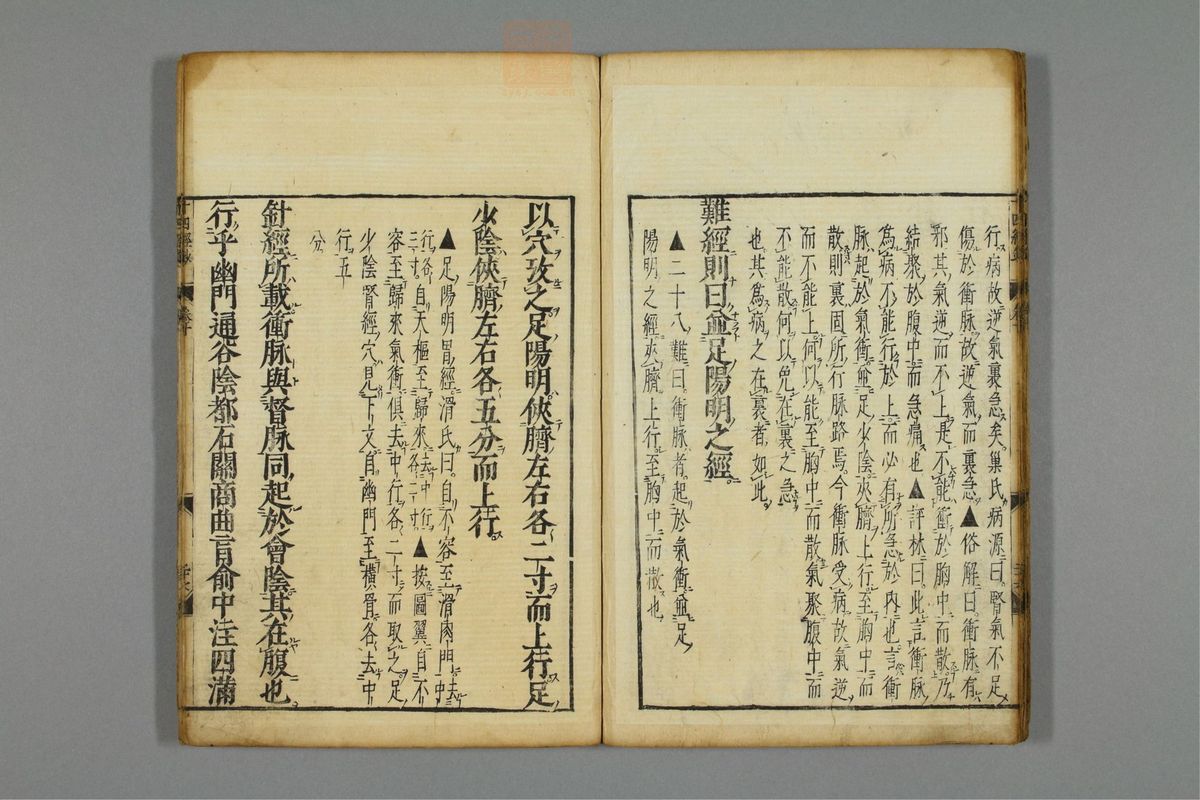 行病故逆氣裏急矣巢氏病源曰腎氣不足
傷於衝脉故逆氣而裏急▲俗解曰衝脉有
邪其氣逆而不上是不能衝於胸中而散乃
結聚於腹中而急痛也▲評林曰此言衝脉
為病不能行於上而必有所急於內也言衝
脉起於氣衝並足少陰夾臍上行至胸中而
散則裏固所行脉路焉今衝脉受病故氣逆
而不能上何以能至胸中而散氣聚腹中而
不能散何以免在裏之急
也其為病之在裏者如此
難經則曰並足陽明之經
▲二十八難曰衝脉者起於氣衝並足
陽明之經夾臍上行至胸中而散也
以穴攷之足陽明俠臍左右各二寸而上行足
少陰俠臍左右各五分而上行
▲足陽明胃經滑氏曰自不容至滑肉門去中
行各
三寸自天樞至歸來去中行各二寸▲按圖翼自不
容至歸來氣衝俱去中行各二寸而取之足
少陰腎經穴見下文自幽門至橫骨各去中
行五
分
針經所載衝脉與督脉同起於會陰其在腹也
行乎幽門通谷陰都石關商曲肓俞中注四滿